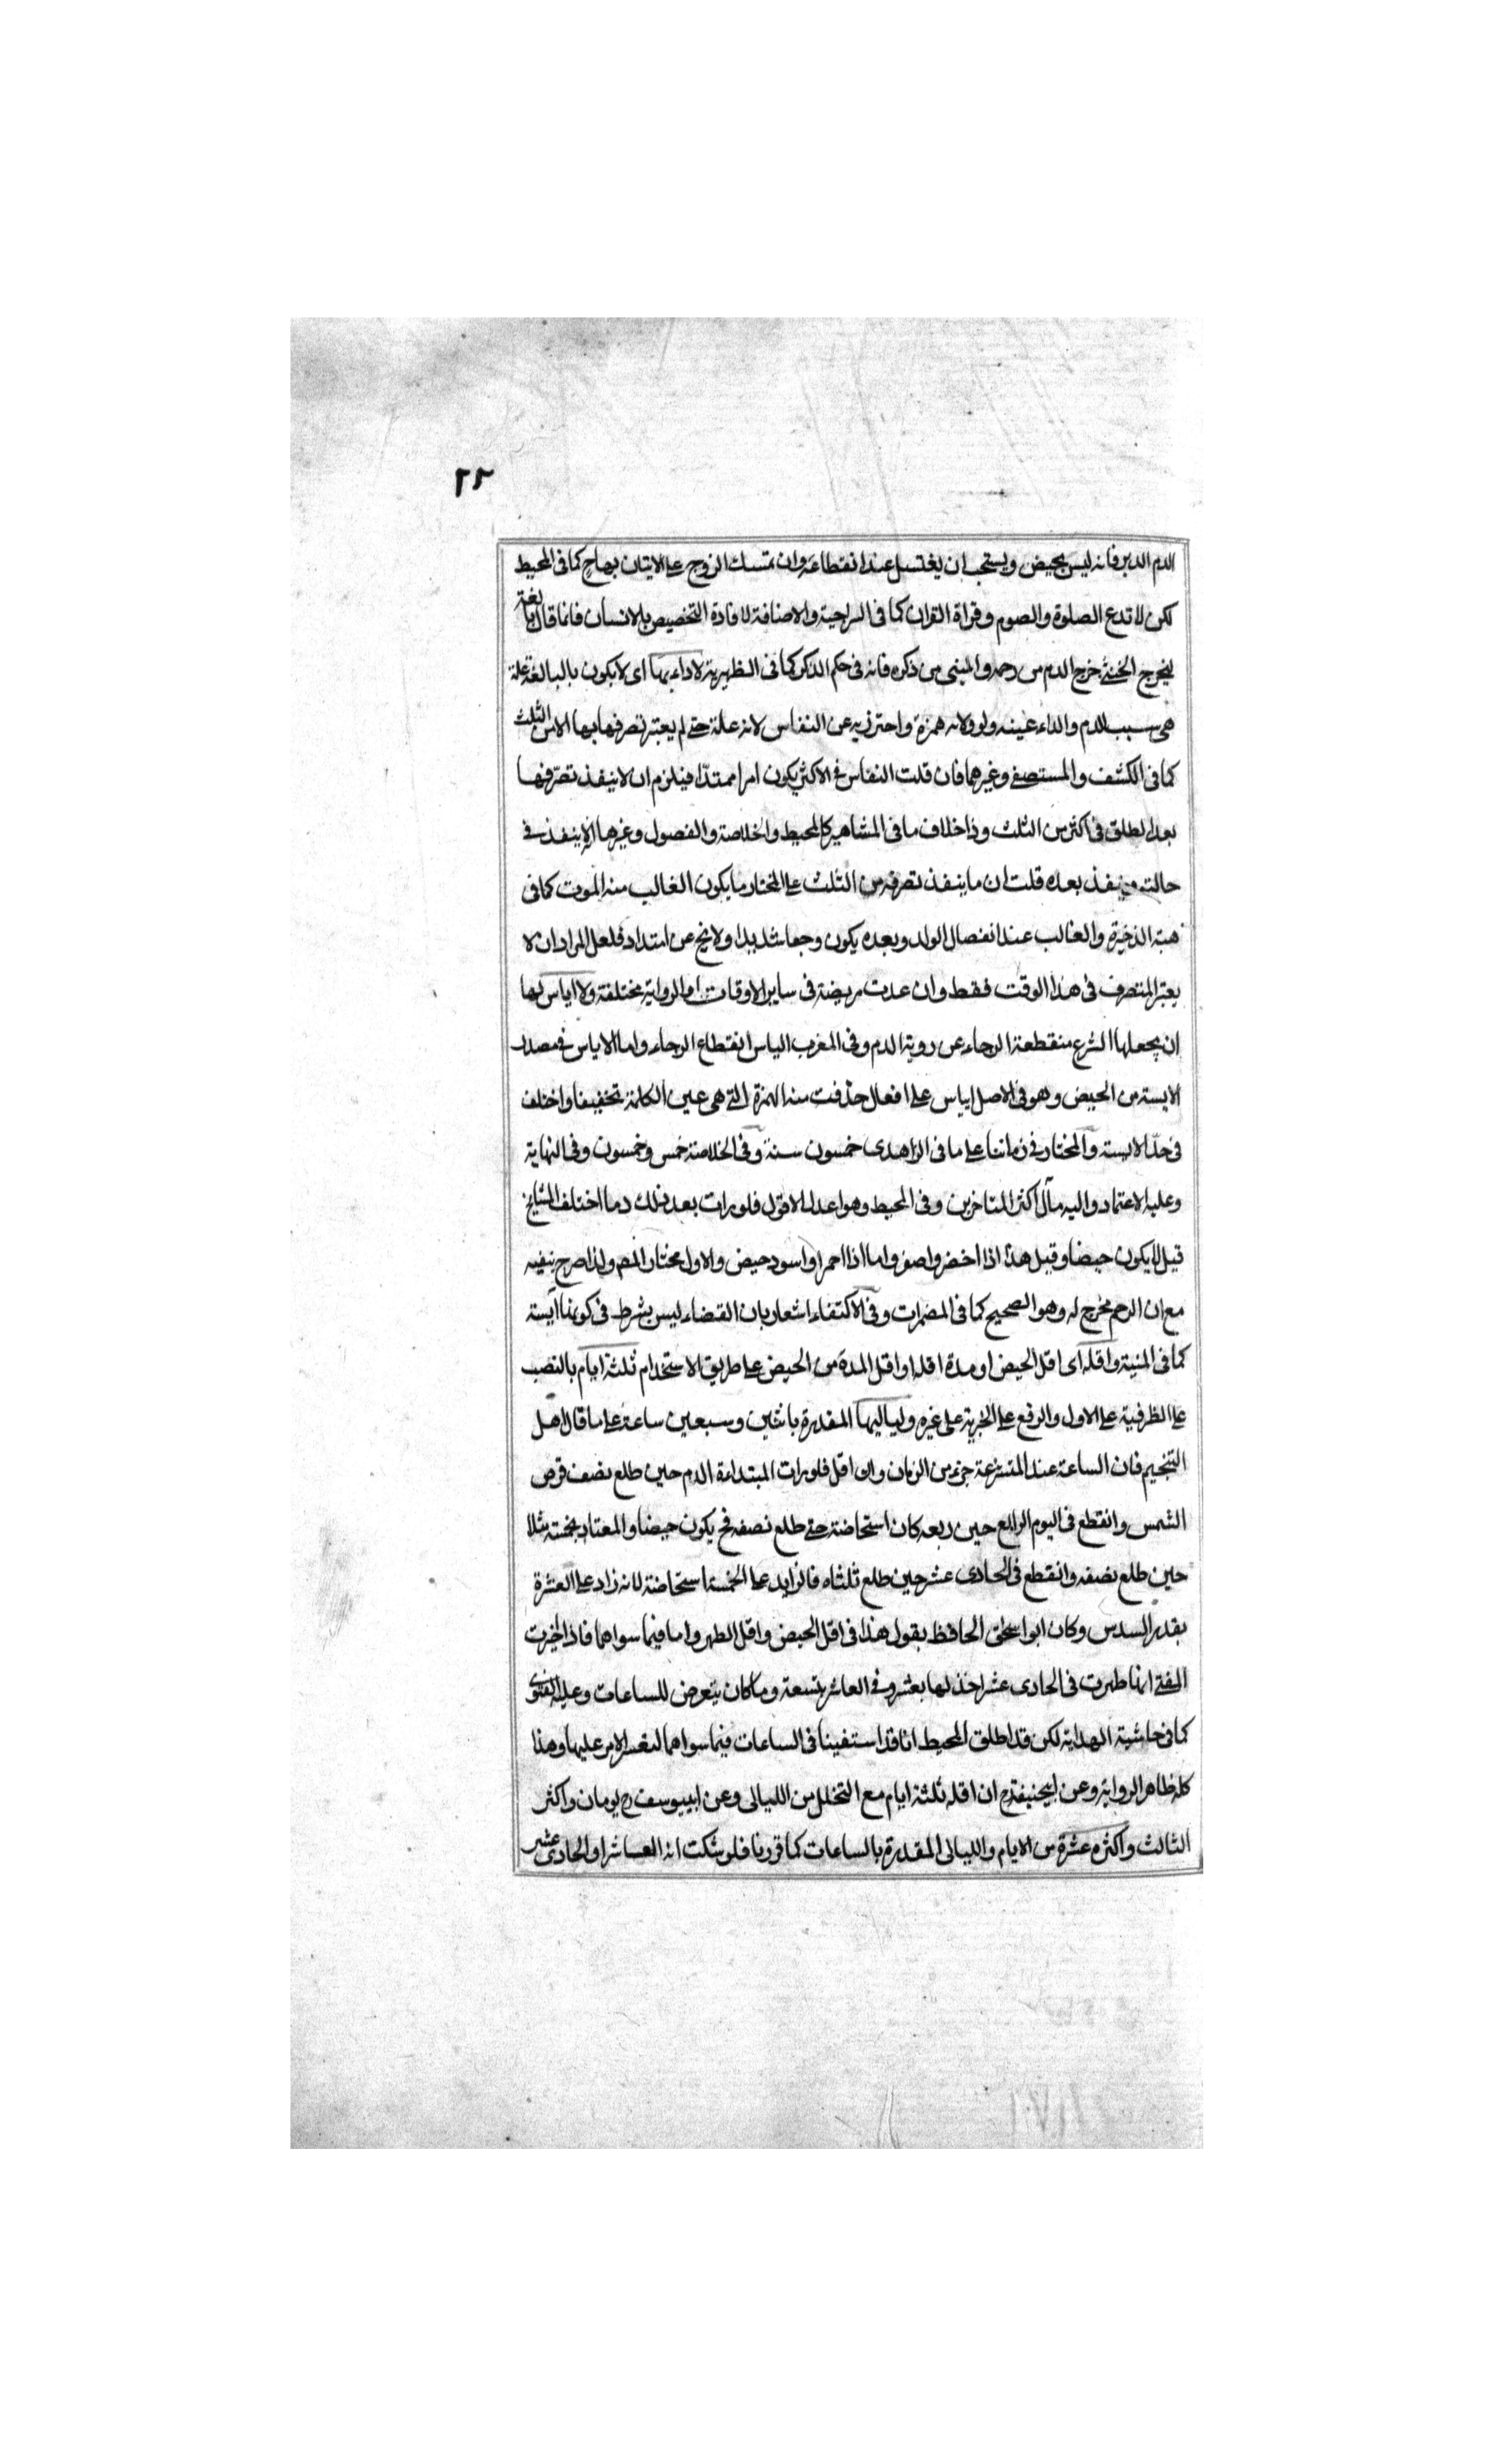 ٢٢
الدم الدبر فانه ليس بحيض ويستحب ان يغتسل عند انقطاعه وان تمسك الزوج على الاتيان بها كما فى المحيط
لكن لا تدع الصلوة والصوم وقراة القران كما فى السراجية والاضافة لافادة التخصيص بالانسان فانما قال بالغة
ليخرج الخنثى خرج الدم من رحمه والمنى من ذكره فانه فى حكم الذكر كما فى الظهيرية لا داء بها اى لا يكون بالبالغة علة
هى سبب للدم والداء عينه ولو ولامه همزة واحترز به عن النفاس لانه علة حتى لم يعتبر تصرفها بها الا من الثلث
كما فى الكشف والمستصفى وغيرهما فان قلت النفاس فى الاكثر يكون امرا ممتدّا فيلزم ان لا ينفذ تصرّفها
بعد الطلق فى اكثر من الثلث وذا خلاف ما فى المشاهير كالمحيط والخلاصة والفصول وغيرها انه ينفذ فى
حالته وينفذ بعده قلت ان ما ينفذ تصرفه من الثلث على المختار ما يكون الغالب منه الموت كما فى
هبة الذخيرة والغالب عند انفصال الولد وبعده يكون وجعا شديدا ولا يخ عن امتداد فلعل المراد ان لا
يعتبر المتصرف فى هذا الوقت فقط وان عدت مريضة فى ساير الاوقات اما الرواية مختلفة ولا اياس لها
ان يجعلها الشرع منقطعة الرجاء عن روية الدم وفى المغرب الياس انقطاع الرجاء واما الاياس فى مصدر
الايسة من الحيض وهو فى الاصل اياس على افعال حذفت منه الهمزة التى هى عين الكلمة تخفيفا واختلف
فى حدّ الايسة والمختار فى زماننا على ما فى الزاهدى خمسون سنة وفى الخلاصة خمس وخمسون وفى النهاية
وعليه الاعتماد واليه مآل اكثر المتاخرين وفى المحيط وهو اعدل الاقول فلو رات بعد ذلك دما اختلف المشايخ
قيل لا يكون حيضا وقيل هذا اذا اخضر واصفر واما اذا احمر او اسود حيض والاول مختار المص ولذا صرح بنفيه
مع ان الرحم مخرج له وهو الصحيح كما فى المضمرات وفى الاكتفاء اشعار بان القضاء ليس بشرط فى كونها آيسة
كما فى المنية واقله اى اقل الحيض او مدة اقله او اقل المدة من الحيض على طريق الاستخدام ثلثة ايام بالنصب
على الظرفية على الاول والرفع على الخبرية على غيره ولياليها المقدرة باثنين وسبعين ساعة على ما قال اهل
التنجيم فان الساعة عند المتشرعة جزء من الزمان وان اقل فلو رات المبتداءة الدم حين طلع نصف قرص
الشمس وانقطع فى اليوم الرابع حين ربعه كان استحاضة حتى طلع نصفه فح يكون حيضا والمعتاد بخمسة مثلا
حين طلع نصفه وانقطع فى الحادى عشر حين طلع ثلثاه فالزايد على الخمسة استحاضة لانه زاد على العشرة
بقدر السدس وكان ابو اسحق الحافظ يقول هذا فى اقل الحيض واقل الطهر واما فيما سواهما فاذا اخبرت
المفتى انها طهرت فى الحادى عشر اخذ لها بعشرة وفى العاشر بتسعة وما كان يتعرض للساعات وعليه الفتوى
كما فى حاشية الهداية لكن قد اطلق المحيط انا قد استقينا فى الساعات فيما سواهما لعسر الامر عليها وهذا
كله ظاهر الرواية وعن ابيحنيفة رح ان اقله ثلثة ايام مع التخلل من الليالى وعن ابييوسف رح يومان واكثر
الثالث واكثره عشرة من الايام والليالى المقدرة بالساعات كما قررنا فلو شكت انه العاشر او الحادى عشر